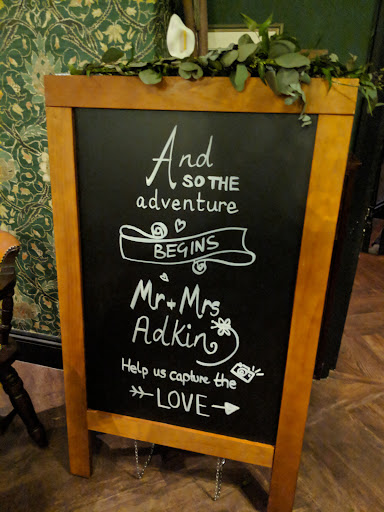 And
SO THE
adventure
BEGINS
Mr + Mrs
Adkin
Help us capture the
LOVE